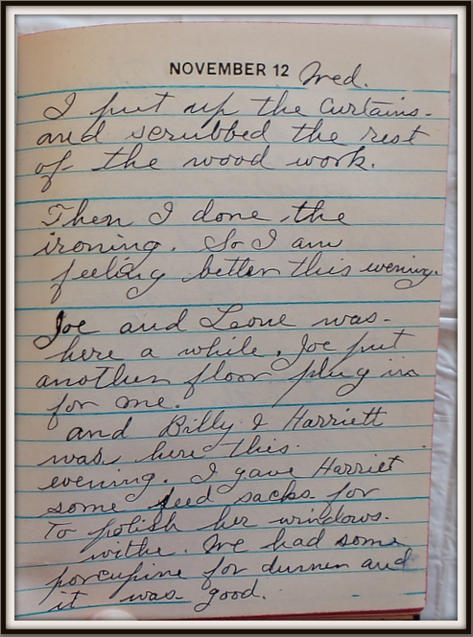 NOVEMBER 12 Wed.
I put up the Curtains.
and scrubbed the rest
of the wood work.
Then I done the
ironing. So I am
feeling better this evening.
Joe and Leone was
here a while. Joe put
another floor plug in
for me.
and Billy & Harriett
was here this
evening. I gave Harriet
some feed sacks for
To polish her windows.
withe. We had some
porcupine for dinner and
it was good.